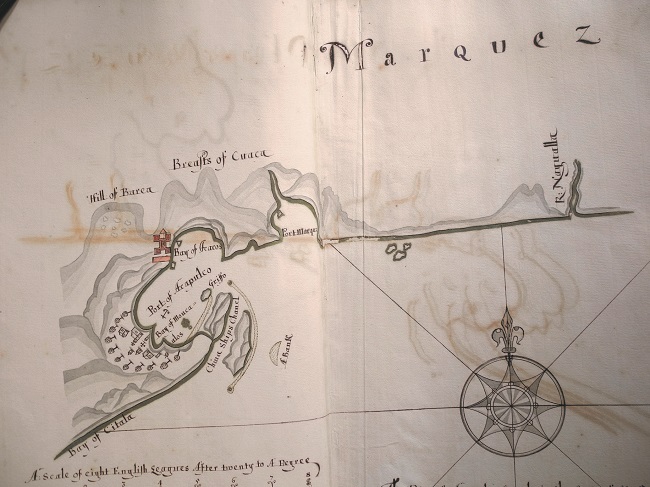 Marquez
Breasts of Cuaca
Hill of Barea
R: Nagualla
Port Marqu
Bay of Icacos
Port of Acapulco
Griffo
Bay of
China Ships Chanel
A Bank
Bay of Citala
A Scale of eight English Leagues After twenty to A Degree